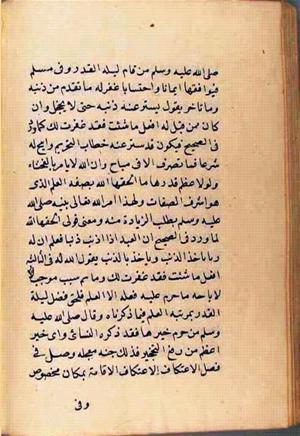 صلى الله عليه وسلم من قام ليلة القدر وفى مسلم
فيوافقها ايمانا واحتسابا غفر له ما تقدم من ذنبه
وما تاخر يقول يستر عنه ذنبه حتى لا يخجل وان
كان ممن قيل له افعل ما شئت فقد غفرت لك كما ورد
فى الصحيح فيكون قد ستر عنه خطاب التحريم وابيح له
شرعا فما تصرف الا فى مباح وان الله لا يامر بالفحشاء
ولولا عظم قدرها ما الحقها الله بصفة العلم الذى هو
اشرف الصفات ولهذا امر الله تعالى نبيه صلى الله
عليه وسلم بطلب الزيادة منه ومعنى قولى الحقها الله
لما ورد فى الصحيح ان العبد اذا اذنب ذنبا فعلم ان له
ربا ياخذ الذنب وياخذ بالذنب يقول الله له فى الثالثة
افعل ما شئت فقد غفرت لك وما ثم سبب موجب
لاباحة ما حرم عليه فعله الا العلم فلحق فضل ليلة
القدر بمرتبة العلم فيما ذكرناه وقال صلى الله عليه
وسلم من حرم خيرها فقد ذكره النسائى واى خير
اعظم من رفع التحجير فذلك جنة معجلة وصل فى
فصل الاعتكاف الاعتكاف الاقامة بمكان مخصوص
وفى